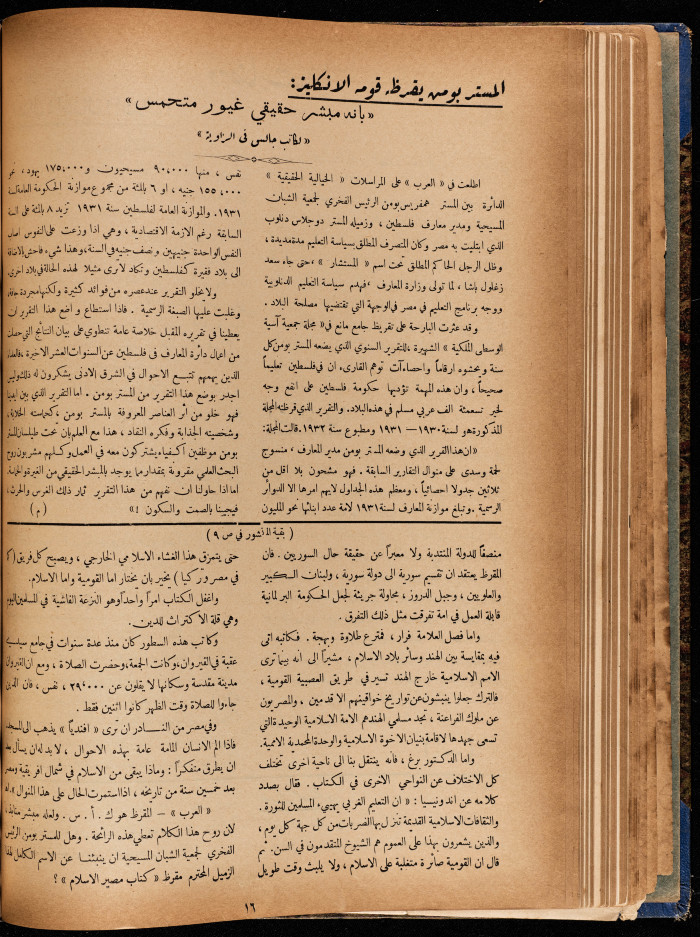 المستر بومن يقرظه قومه الانكليز:
«بانه مبشر حقيقي غيور متحمس»
«لكاتب جالس في الزاوية»
اطلعت في «العرب» على المراسلات «الخيالية الحقيقية»
الدائرة بين المستر همفريس بومن الرئيس الفخري لجمعية الشبان
المسيحية ومدير معارف فلسطين، وزميله المستر دوجلاس دنلوب
الذي ابتليت به مصر وكان المتصرف المطلق بسياسة التعليم مدة مديدة،
وظل الرجل الحاكم المطلق تحت اسم «المستشار»، حتى جاء سعد
زغلول باشا، لما تولى وزارة المعارف، فهدم سياسة التعليم الدنلوبية
ووجه برنامج التعليم في مصر في الوجهة التي تقتضيها مصلحة البلاد.
وقد عثرت البارحة على تقريظ جامع مانع في «مجلة جمعية آسية
الوسطى الملكية» الشهيرة، للتقرير السنوي الذي يضعه المستر بومن كل
سنة ويحشوه ارقاماً واحصاءآت توهم القارىء ان في فلسطين تعليماً
صحيحاً، وان هذه المهمة تؤديها حكومة فلسطين على انفع وجه
لخير تسعمئة الف عربي مسلم في هذه البلاد. والتقرير الذي قرظته المجلة
المذكورة هو لسنة ١٩٣٠ — ١٩٣١ ومطبوع سنة ١٩٣٢. قالت المجلة:
«ان هذا التقرير الذي وضعه المستر بومن مدير المعارف، منسوج
لحمة وسدى على منوال التقارير السابقة. فهو مشحون بلا اقل من
ثلاثين جدولا احصائياً، ومعظم هذه الجداول لايهم امرها الا الدوائر
الرسمية. وتبلغ موازنة المعارف لسنة ١٩٣١ لامة عدد ابنائها نحو المليون
نفس، منها ٩٠،٠٠٠ مسيحيون و١٧٥،٠٠٠ يهود، نحو
١٥٥،٠٠٠ جنيه، او ٦ بالمئة من مجموع موازنة الحكومة العامة لسنة
١٩٣١. والموازنة العامة لفلسطين سنة ١٩٣١ تزيد ٨ بالمئة على السنة
السابقة رغم الازمة الاقتصادية، وهي اذا وزعت على النفوس اصاب
النفس الواحدة جنيهين ونصف جنيه في السنة، وهذا شيء فاحش بالاضافة
الى بلاد فقيرة كفلسطين وتكاد لاترى مثيلا لهذه الحالة في بلاد اخرى.
ولايخلو التقرير عند عصره من فوائد كثيرة ولكنها مجردة جافة
وغلبت عليها الصبغة الرسمية. فاذا استطاع واضع هذا التقرير ان
يعطينا في تقريره المقبل خلاصة عامة تنطوي على بيان النتائج التي حصلت
من اعمال دائرة المعارف في فلسطين عن السنوات العشر الاخيرة، فالقراء
الذين يهمهم تتبع الاحوال في الشرق الادنى يشكرون له ذلك وليس
اجدر بوضع هذا التقرير من المستر بومن. اما التقرير الذي بين ايدينا
فهو خلو من اثر العناصر المعروفة بالمستر بومن، كحماسته الخلابة،
وشخصيته الجذابة وفكره النقاد، هذا مع العلم بان تحت طيلسان المستر
بومن موظفين اكفياء يشتركون معه في العمل وكلهم مشربون روح
البحث العلمي مقرونة بمقدار مما يوجد بالمبشر الحقيقي من الغيرة والحماسة.
اما اذا حاولنا ان نفهم من هذا التقرير ثمار ذلك الغرس والحرث،
فيجيبنا بالصمت والسكون!» (م)
(بقية المنشور في ص ٩)
منصفاً للدولة المنتدبة ولا معبراً عن حقيقة حال السوريين. فان
المقرظ يعتقد ان تقسيم سورية الى دولة سورية، ولبنان الكبير
والعلويين، وجبل الدروز، محاولة جريئة لجعل الحكومة البرلمانية
قابلة العمل في امة تفرقت مثل ذلك التفرق.
واما فصل العلامة فرار، فمترع طلاوة وبهجة. فكاتبه اتى
فيه بمقايسة بين الهند وسائر بلاد الاسلام، مشيراً الى انه بينما ترى
الامم الاسلامية خارج الهند تسير في طريق العصبية القومية،
فالترك جعلوا ينبشون عن تواريخ خواقينهم الاقدمين، والمصريون
عن ملوك الفراعنة، نجد مسلمي الهند هم الامة الاسلامية الوحيدة التي
تسعى جهدها لاقامة بنيان الاخوة الاسلامية والوحدة المحمدية الاممية.
واما الدكتور برغ، فانه ينتقل بنا الى ناحية اخرى تختلف
كل الاختلاف عن النواحي الاخرى في الكتاب. فقال بصدد
كلامه عن اندونيسيا: «ان التعليم الغربي يهيىء المسلمين للثورة.
والثقافات الاسلامية القديمة تنزل بها الضربات من كل جهة كل يوم،
والذين يشعرون بهذا على العموم هم الشيوخ المتقدمون في السن. ثم
قال ان القومية صائرة متغلبة على الاسلام، ولا يلبث وقت طويل
حتى يتمزق هذا الغشاء الاسلامي الخارجي، ويصبح كل فريق (كما
في مصر وتركيا) يخير بان يختار اما القومية واما الاسلام.
واغفل الكتاب امراً واحداً وهو النزعة الفاشية في المسلمين اليوم
وهي قلة الاكتراث للدين.
وكاتب هذه السطور كان منذ عدة سنوات في جامع سيدي
عقبة في القيروان، وكانت الجمعة، وحضرت الصلاة، ومع ان القيروان
مدينة مقدسة وسكانها لا يقلون عن ٢٩،٠٠٠ نفس، فان الذين
جاءوا للصلاة وقت الظهر كانوا اثنين فقط.
وفي مصر من النادر ان ترى «افندياً» يذهب الى المسجد.
فاذا الم الانسان المامة عامة بهذه الاحوال، لابد له ان يسأل بعد
ان يطرق متفكراً: وماذا يبقى من الاسلام في شمال افريقية ومصر
بعد خمسين سنة من تاريخه، اذا استمرت الحال على هذا المنوال».
«العرب» — المقرظ هو ك. أ. س. ولعله مبشر
لان روح هذا الكلام تعطي هذه الرائحة. وهل للمستر بومن الرئيس
الفخري لجمعية الشبان المسيحية ان ينبئنا عن الاسم الكامل لهذا
الزميل المحترم مقرظ «كتاب مصير الاسلام»؟
١٦